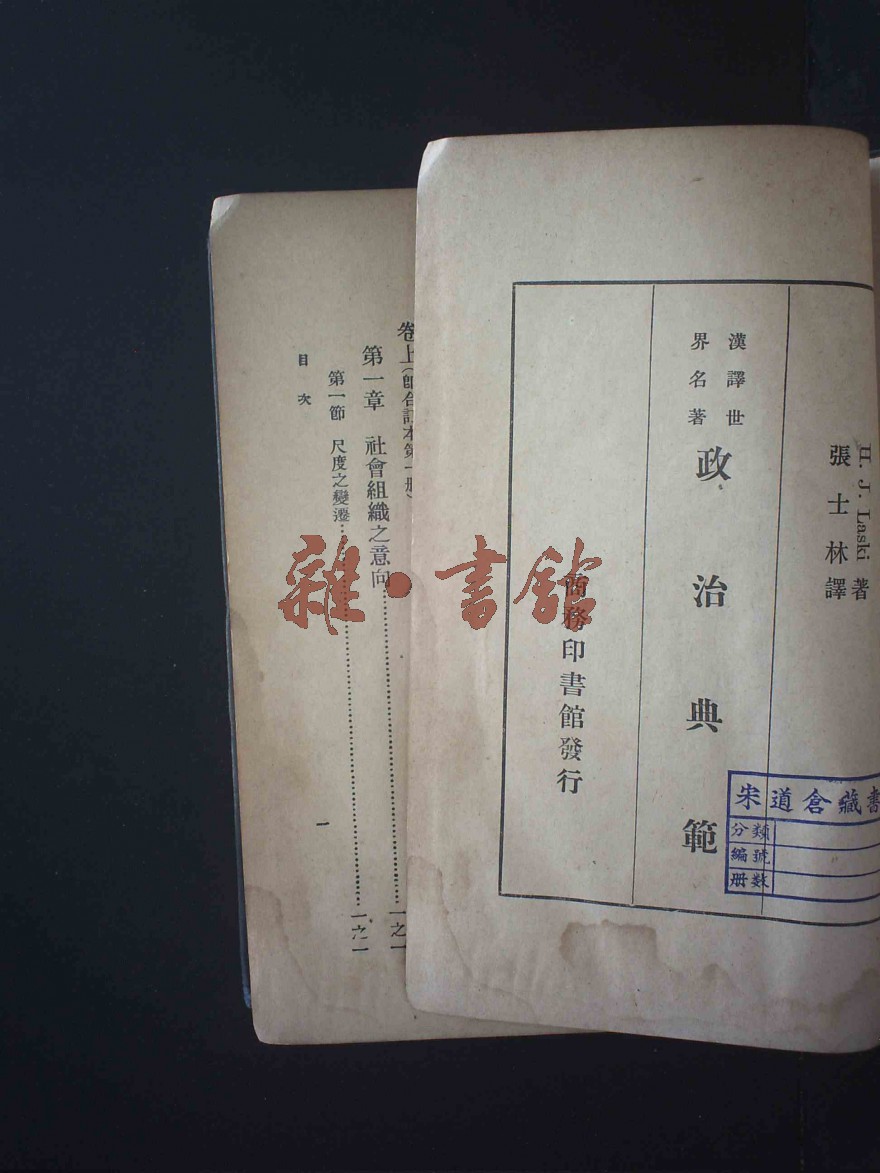 H. J. Laski 著
張士林譯
漢譯世
界名著
政治典範
商務印書館發行
宋道倉藏書
分類
編號
册数
卷上(即合訂本第一册)
第一章 社會組織之意向……一之一
第一節 尺度之變遷……一之一
目次
一
雜·書館